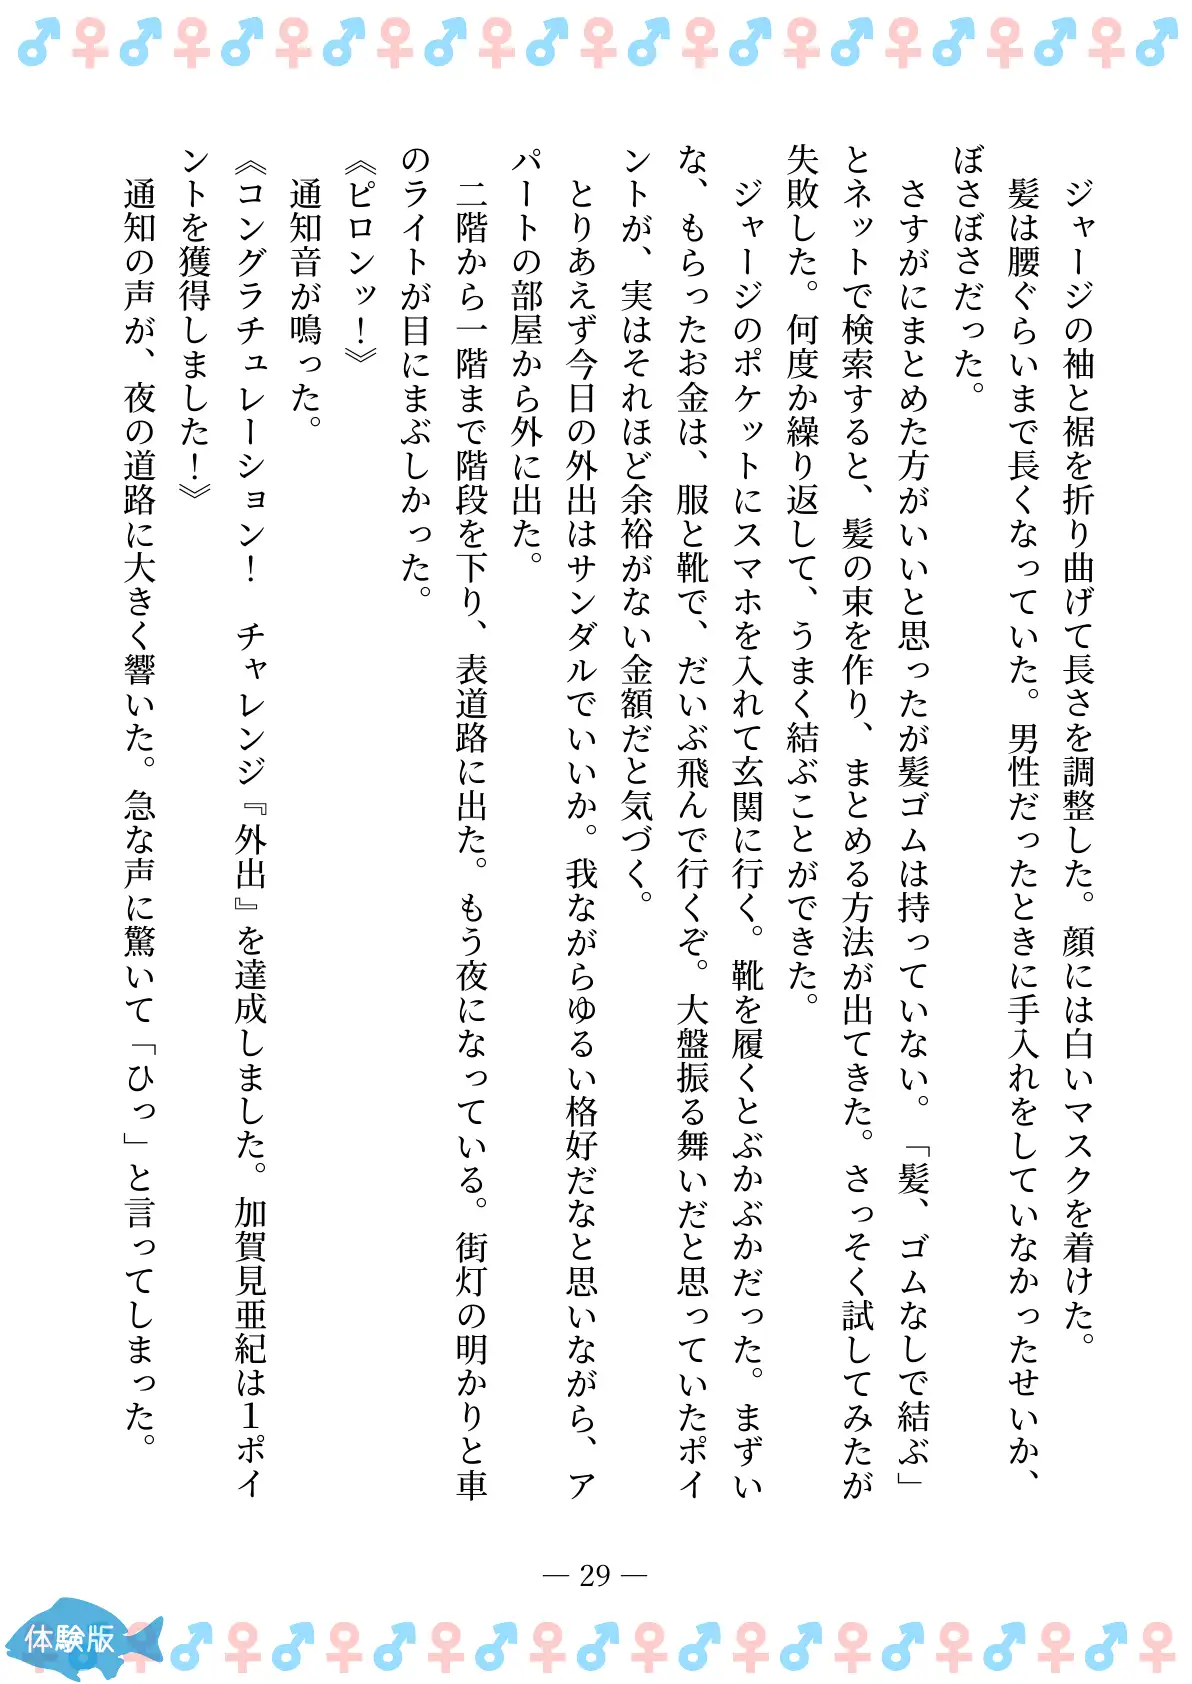 ジャージの袖と裾を折り曲げて長さを調整した。顔には白いマスクを着けた。
髪は腰ぐらいまで長くなっていた。男性だったときに手入れをしていなかったせいか、
ぼさぼさだった。
さすがにまとめた方がいいと思ったが髪ゴムは持っていない。「髪、ゴムなしで結ぶ」
とネットで検索すると、髪の束を作り、まとめる方法が出てきた。さっそく試してみたが
失敗した。何度か繰り返して、うまく結ぶことができた。
ジャージのポケットにスマホを入れて玄関に行く。靴を履くとぶかぶかだった。まずい
な、もらったお金は、服と靴で、だいぶ飛んで行くぞ。大盤振る舞いだと思っていたポイ
ントが、実はそれほど余裕がない金額だと気づく。
とりあえず今日の外出はサンダルでいいか。我ながらゆるい格好だなと思いながら、ア
パートの部屋から外に出た。
二階から一階まで階段を下り、表道路に出た。もう夜になっている。街灯の明かりと車
のライトが目にまぶしかった。
《ピロンッ！》
通知音が鳴った。
《コングラチュレーション！　チャレンジ『外出』を達成しました。加賀見亜紀は１ポイ
ントを獲得しました！》
通知の声が、夜の道路に大きく響いた。急な声に驚いて「ひっ」と言ってしまった。
— 29 —
体験版